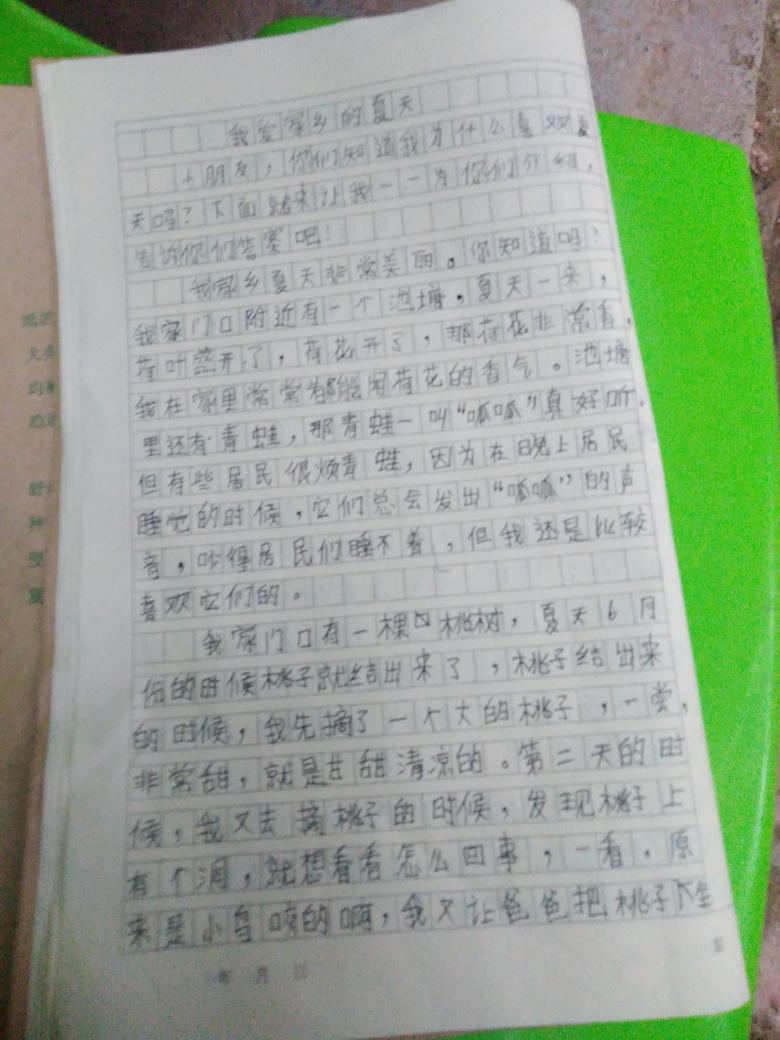 我爱家乡的夏天
小朋友，你们知道我为什么喜欢夏
天吗？下面就来让我一一为你们介绍，
告诉你们答案吧！
我家乡夏天非常美丽。你知道吗？
我家门口附近有一个池塘，夏天一来，
荷叶盛开了，荷花开了，那荷花非常香，
我在家里常常都能闻荷花的香气。池塘
里还有青蛙，那青蛙一叫“呱呱”真好听。
但有些居民很烦青蛙，因为在晚上居民
睡觉的时候，它们总会发出“呱呱”的声
音，吵得居民们睡不着，但我还是比较
喜欢它们的。
我家门口有一棵桃树，夏天6月
份的时候桃子就结出来了，桃子结出来
的时候，我先摘了一个大的桃子，一尝，
非常甜，就是甘甜清凉的。第二天的时
候，我又去摘桃子的时候，发现桃子上
有个洞，就想看看怎么回事，一看，原
来是小鸟咬的啊，我又让爸爸把桃子
年 月 日